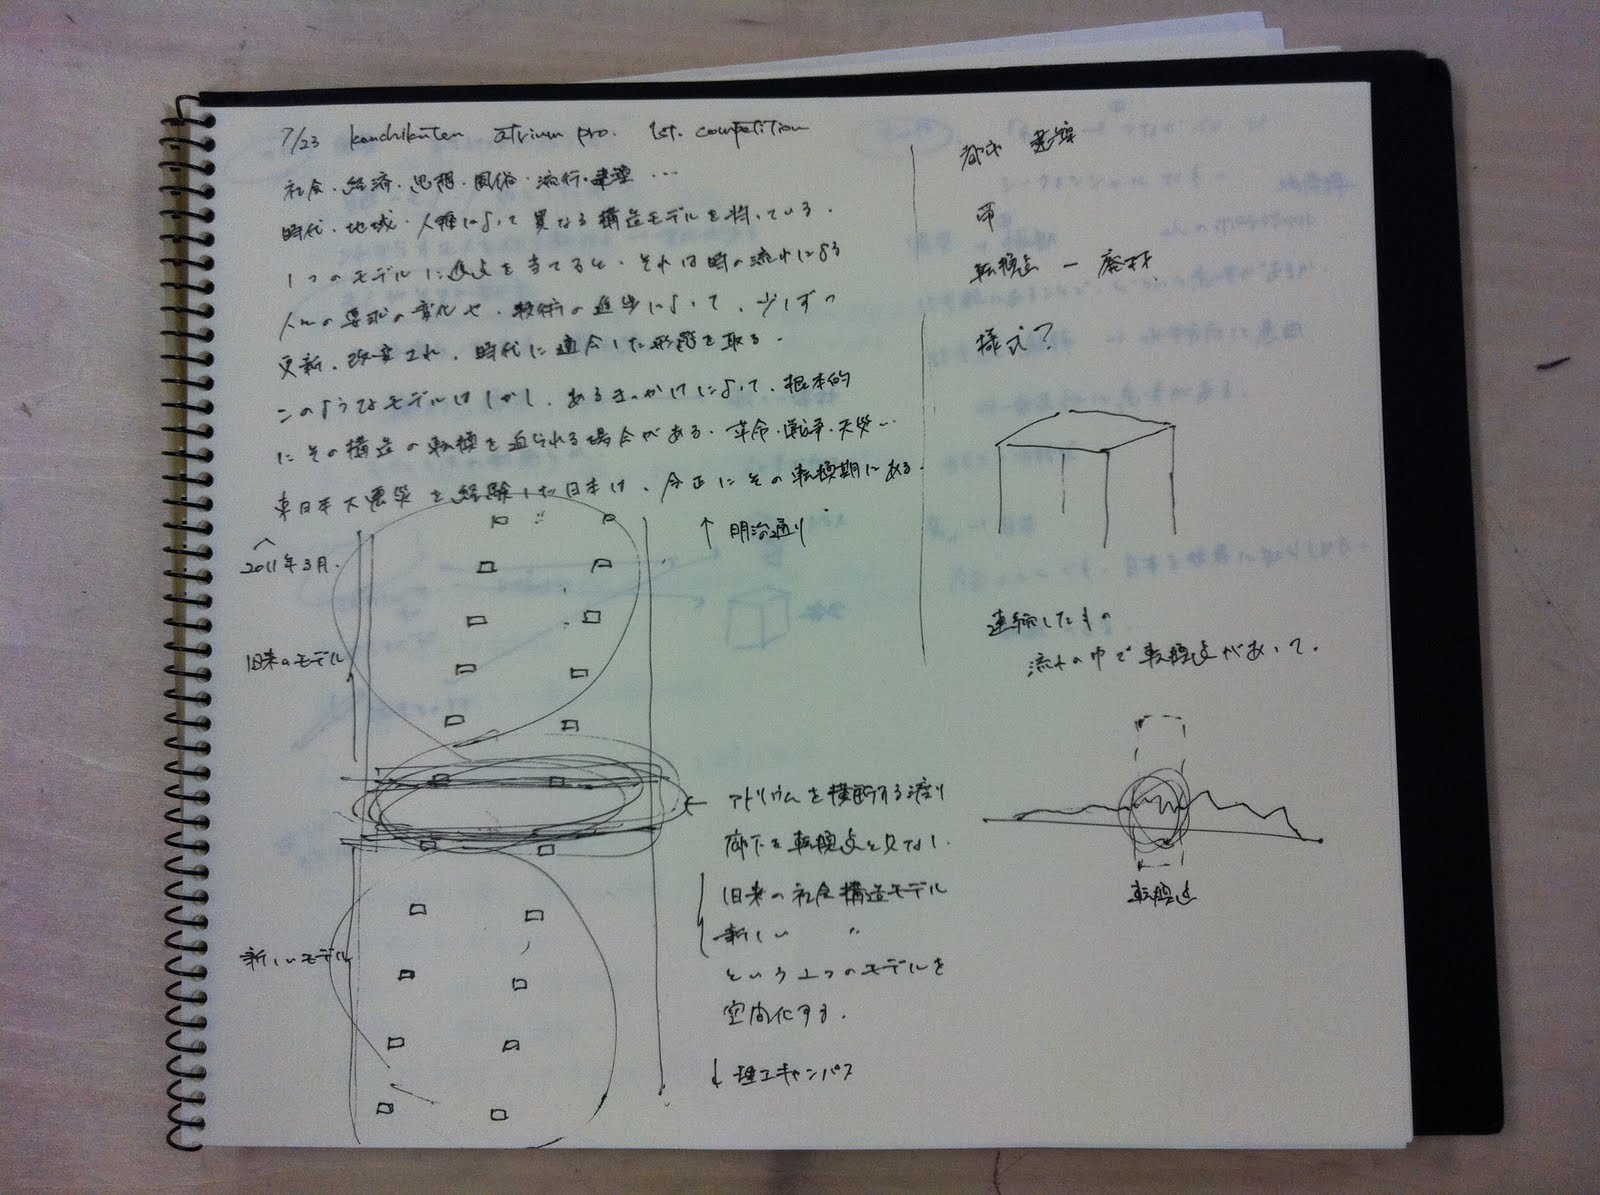 7/23 kenchikuten atrium pro. 1st. competition
社会・経済・思想・風俗・流行・建築…
時代・地域・人種によって異なる構造モデルを持っている.
1つのモデルに焦点を当てると、それは時の流れによる
人々の要求の変化や、技術の進歩によって、少しずつ
更新、改変され、時代に適合した形態を取る.
このようなモデルはしかし、あるきっかけによって、根本的
にその構造の転換を迫られる場合がある. 革命・戦争・天災…
東日本大震災を経験した日本は、今正にその転換期にある.
2011年3月.
↑ 明治通り
旧来のモデル
← アトリウムを横断する渡り
廊下を転換点と見なし、
旧来の社会構造モデル
新しい 〃
という2つのモデルを
空間化する.
新しいモデル
↓ 理工キャンパス
都市 建築
転換点 ー 廃材
様式?
連続したもの
流れの中で転換点があって.
転換点